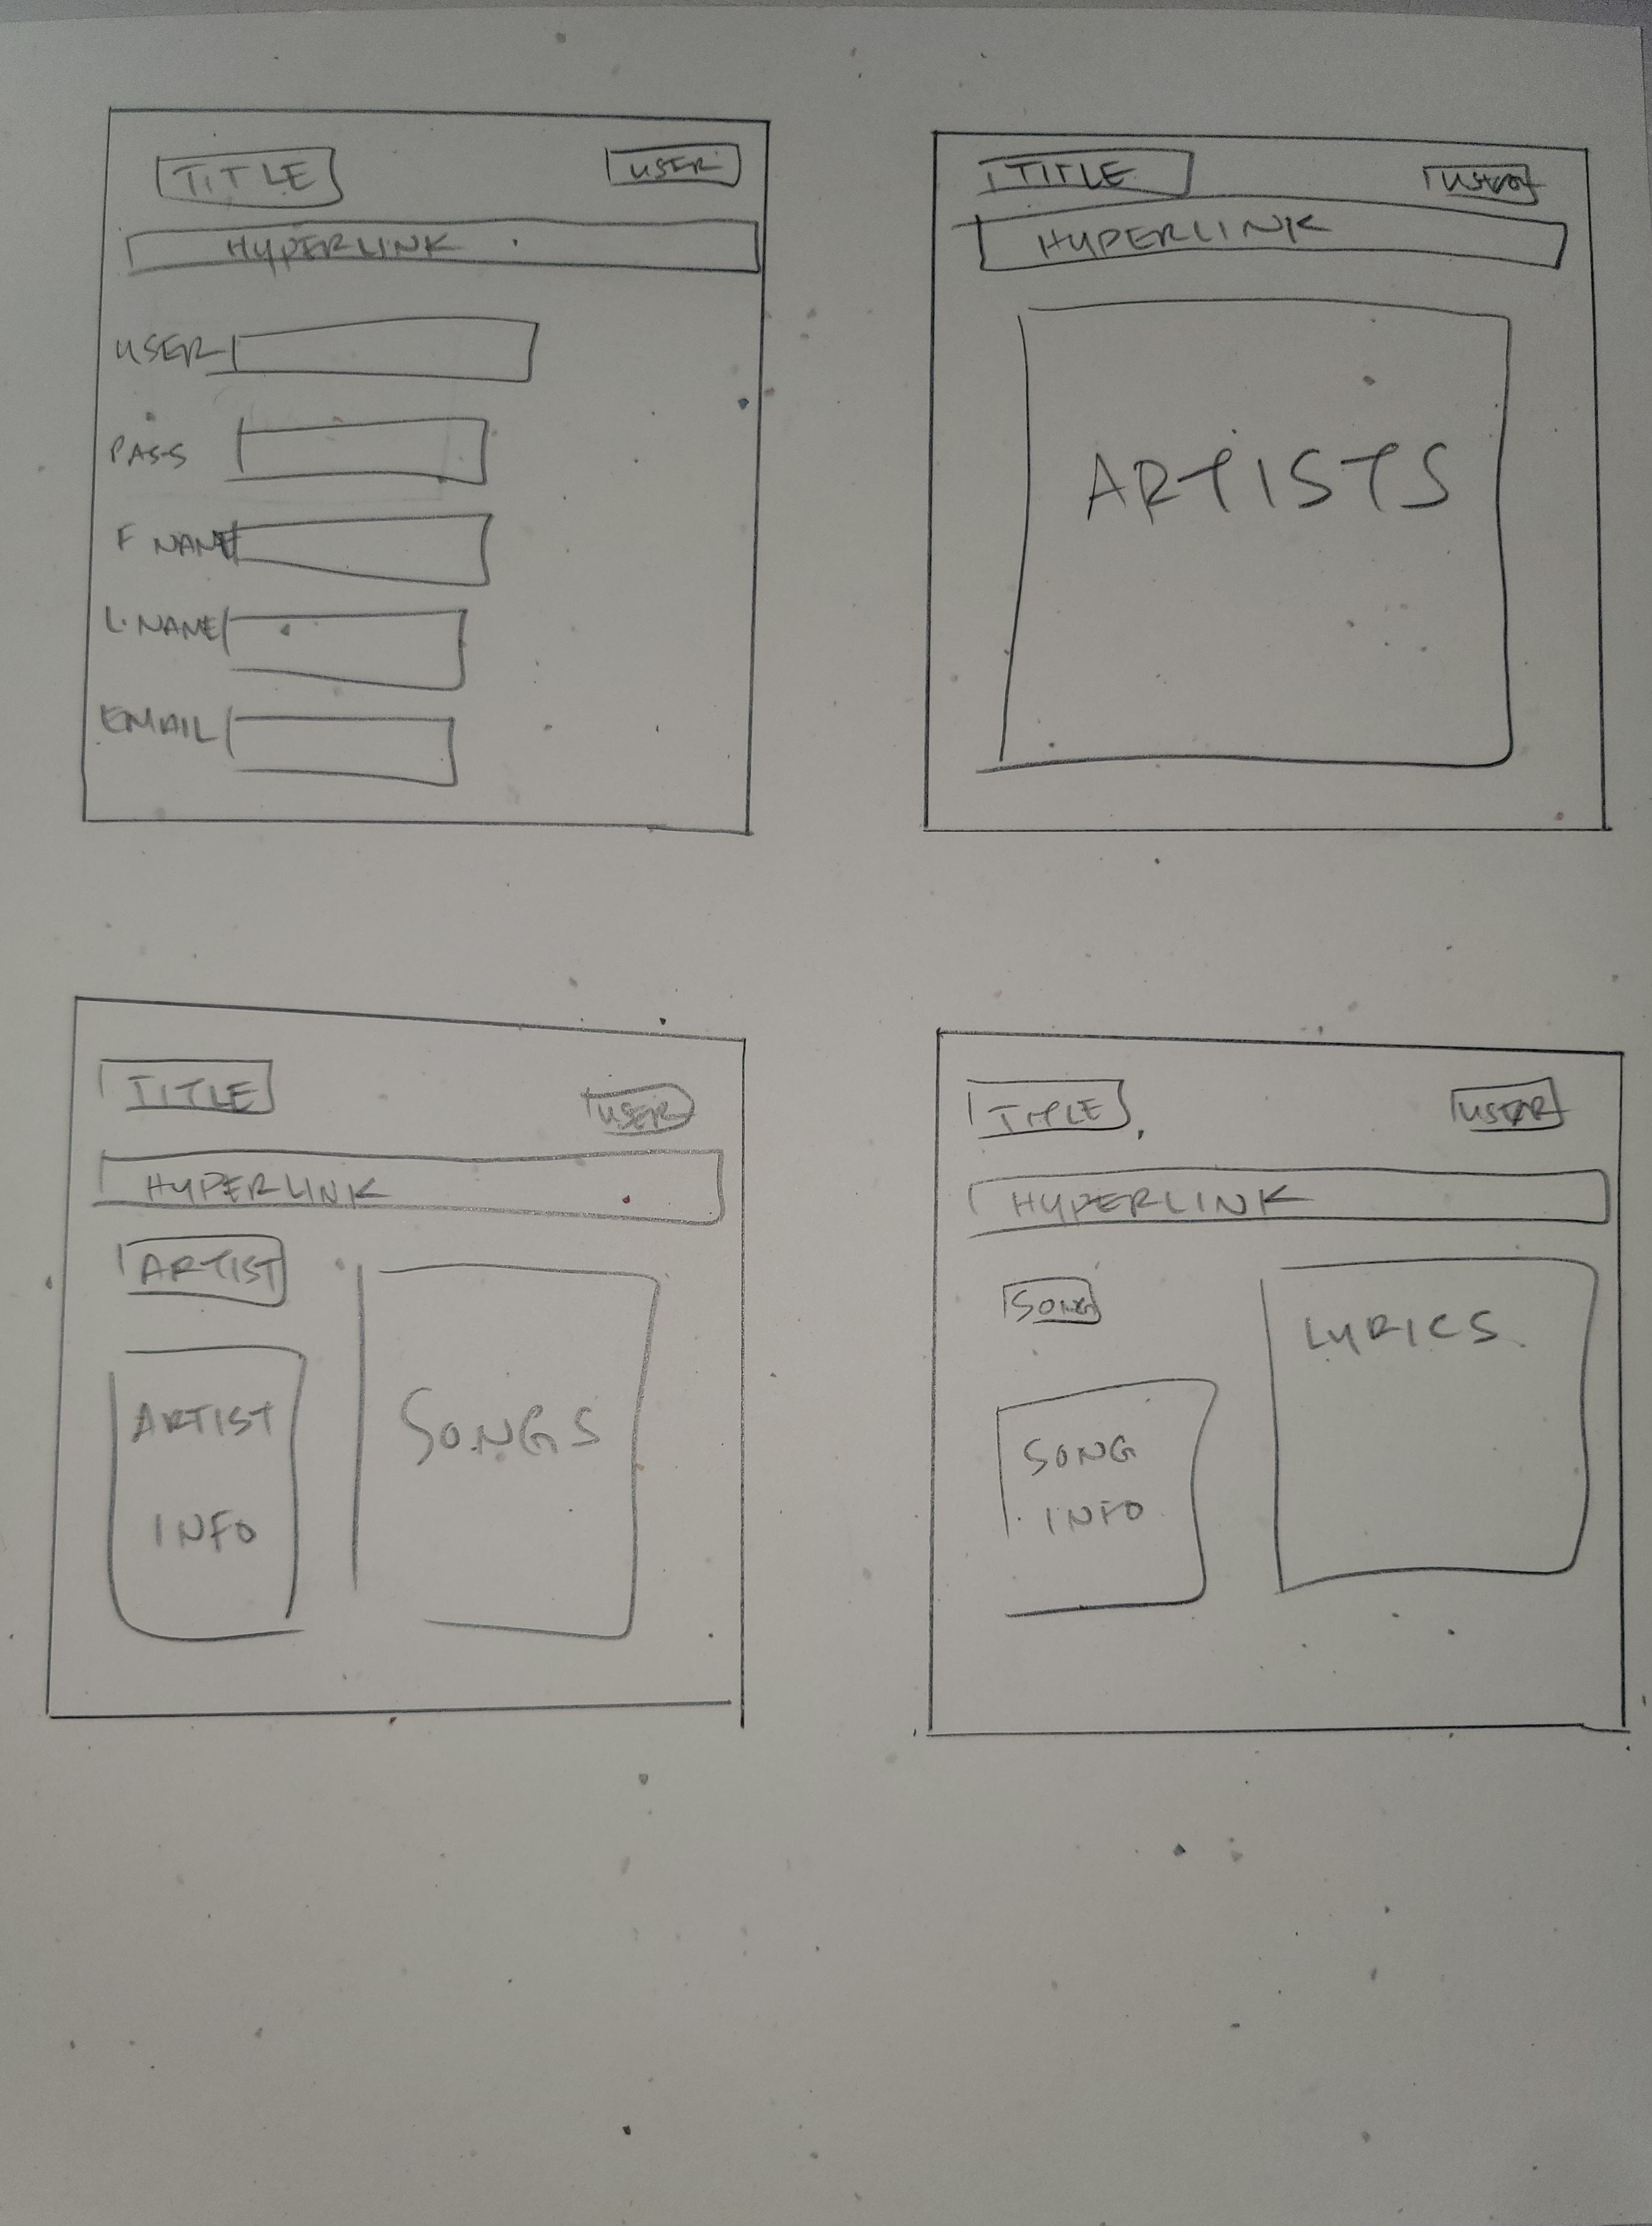 TITLE
USER
HYPERLINK
USER
PASS
F NAME
L. NAME
EMAIL
TITLE
USER
HYPERLINK
ARTISTS
TITLE
USER
HYPERLINK
ARTIST
ARTIST
INFO
SONGS
TITLE
USER
HYPERLINK
SONG
SONG
INFO
LYRICS